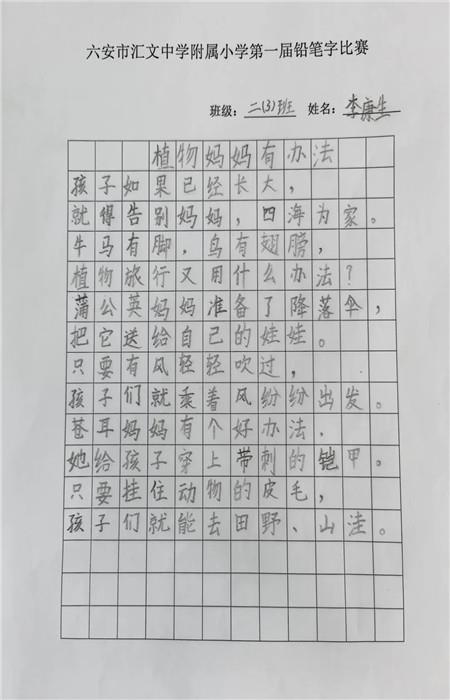 六安市汇文中学附属小学第一届铅笔字比赛
班级：二(3)班 姓名：李康生
植物妈妈有办法
孩子如果已经长大，
就得告别妈妈，四海为家。
牛马有脚，鸟有翅膀，
植物旅行又用什么办法？
蒲公英妈妈准备了降落伞，
把它送给自己的娃娃。
只要有风轻轻吹过，
孩子们就乘着风纷纷出发。
苍耳妈妈有个好办法，
她给孩子穿上带刺的铠甲。
只要挂住动物的皮毛，
孩子们就能去田野、山洼。